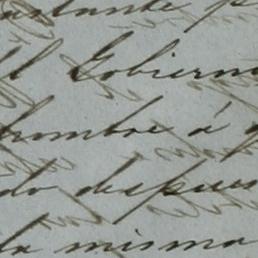 bastante p
el Gobierno
hombre á
do despues
la misma